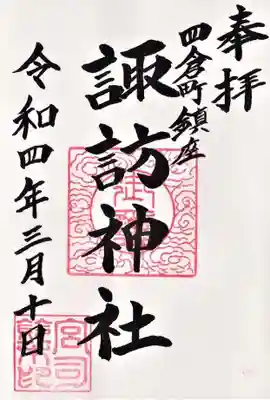 奉拝
四倉町鎮座
諏訪神社
令和四年三月十日